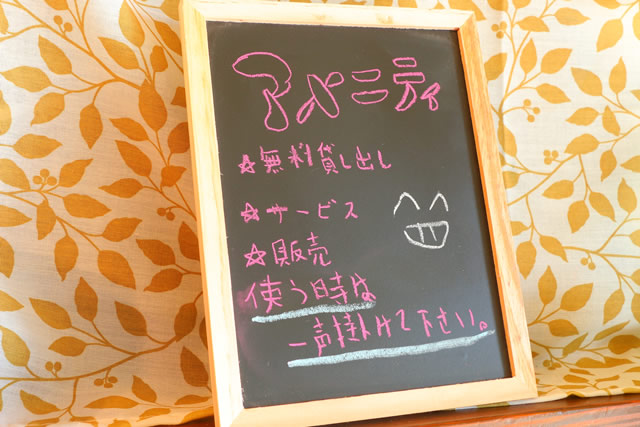 アメニティ
☆無料貸し出し
☆サービス
☆販売
使う時は
一声掛けて下さい。